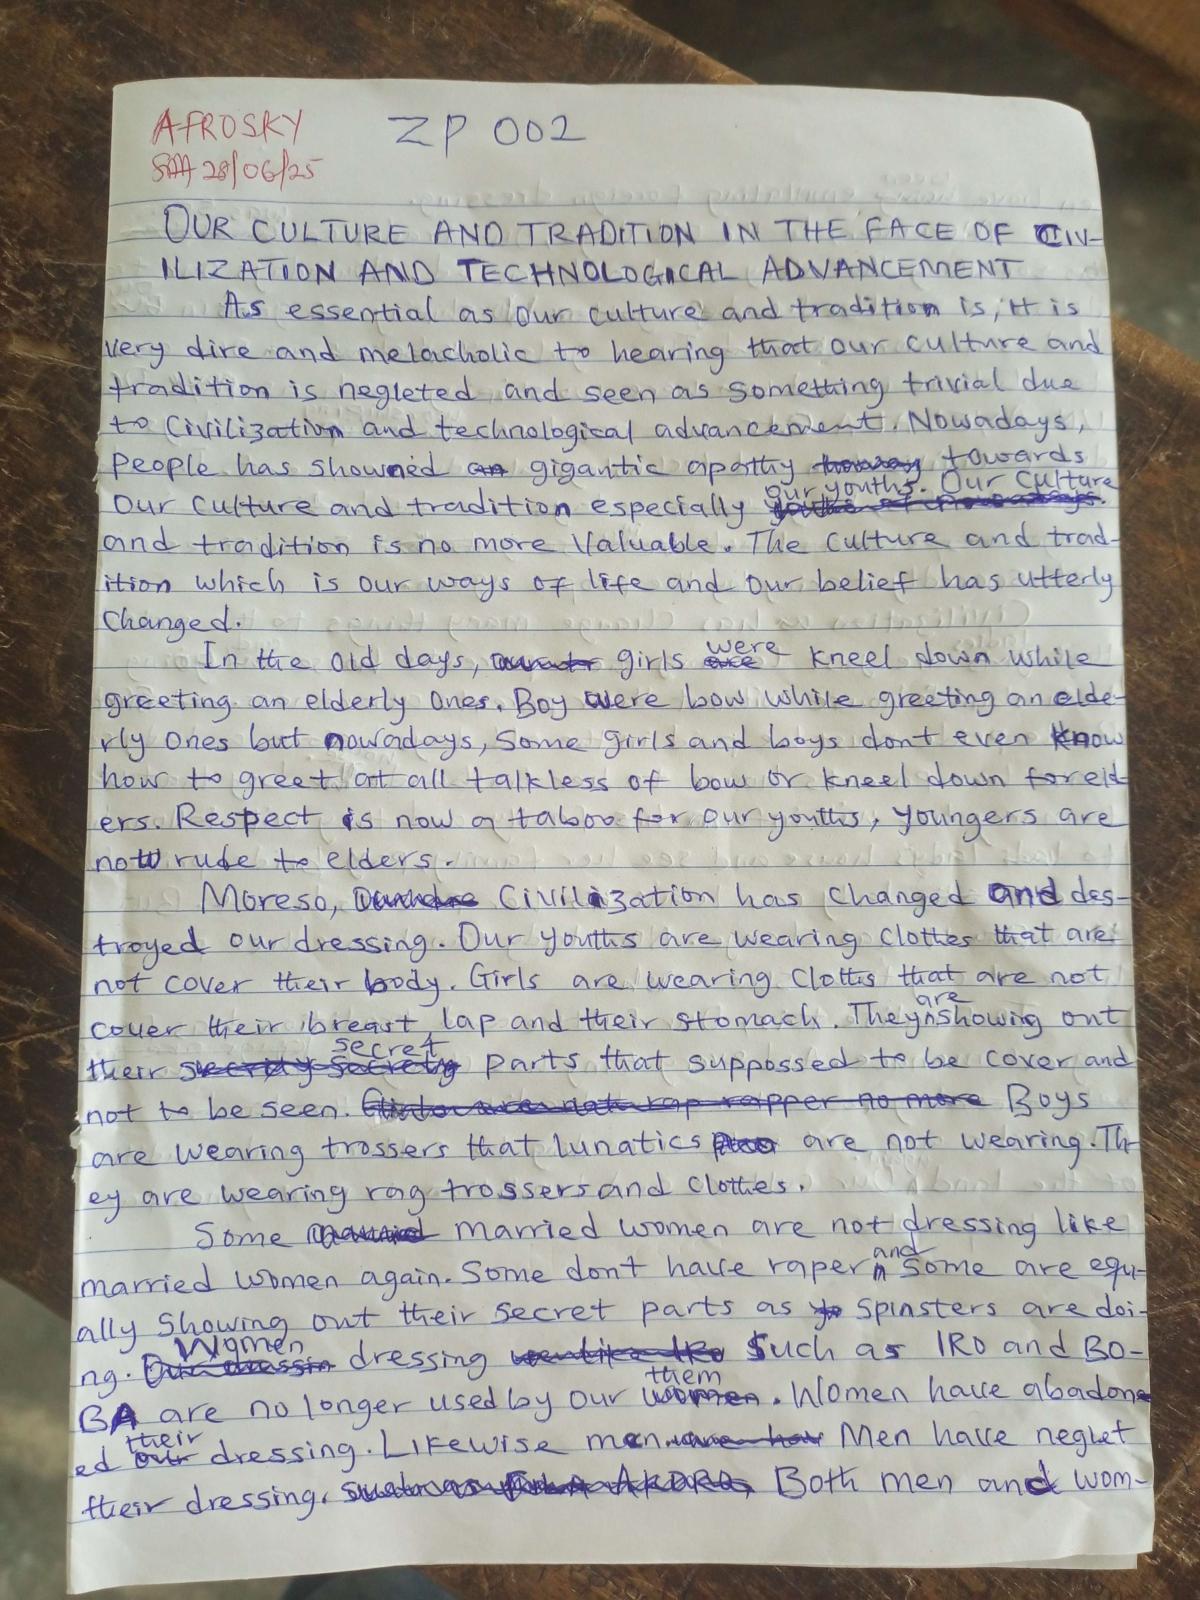 AFROSKY ZP 002
28/06/25
OUR CULTURE AND TRADITION IN THE FACE OF CIV-
ILIZATION AND TECHNOLOGICAL ADVANCEMENT
As essential as our culture and tradition is, it is
very dire and melacholic to hearing that our culture and
tradition is negleted and seen as something trivial due
to Civilization and technological advancement. Nowadays,
People has showned gigantic apathy towards
our culture and tradition especially our youths. Our Culture
and tradition is no more Valuable. The culture and trad-
ition which is our ways of life and our belief has utterly
Changed.
In the old days, girls were kneel down while
greeting an elderly ones. Boy were bow while greeting an elde-
rly ones but nowadays, some girls and boys dont even know
how to greet at all talkless of bow or kneel down for eld-
ers. Respect is now a taboo for our youths, youngers are
now rude to elders.
Moreso, Civilization has changed and des-
troyed our dressing. Our youths are wearing clothes that are
not cover their body. Girls are wearing Cloths that are not
cover their breast, lap and their stomach. They are showing out
their secret parts that suppossed to be cover and
not to be seen. Boys
are wearing trossers that lunatics are not wearing. Th-
ey are wearing rag trossers and clothes.
Some married women are not dressing like
married women again. Some don't have raper and some are equ-
ally showing out their secret parts as spinsters are doi-
ng. Women dressing such as IRO and BO-
BA are no longer used by our them. Women have abadon-
ed their dressing. Likewise men. Men have neglet
their dressing. Both men and wom-